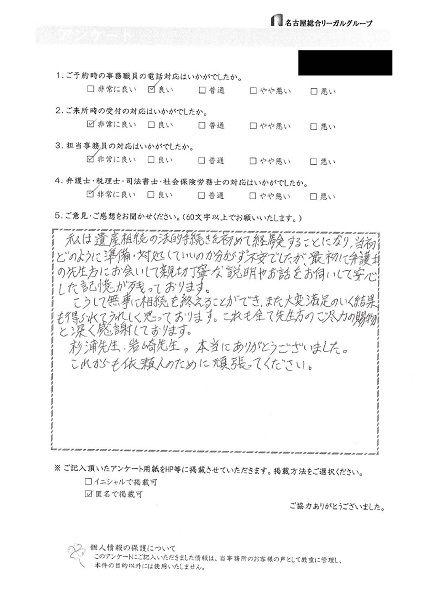 名古屋総合リーガルグループ
アンケート
1.ご予約時の事務職員の電話対応はいかがでしたか。
□非常に良い ☑良い □普通 □やや悪い □悪い
2.ご来所時の受付の対応はいかがでしたか。
☑非常に良い □良い □普通 □やや悪い □悪い
3.担当事務員の対応はいかがでしたか。
☑非常に良い □良い □普通 □やや悪い □悪い
4.弁護士・税理士・司法書士・社会保険労務士の対応はいかがでしたか。
☑非常に良い □良い □普通 □やや悪い □悪い
5.ご意見・ご感想をお聞かせください。(60文字以上でお願いいたします。)
私は遺産相続の法的手続きを初めて経験することになり,当初
どのように準備・対処していいのか分からず不安でしたが,最初に弁護士
の先生方にお会いして親切丁寧な説明やお話をお伺いして安心
した記憶が残っております。
こうして無事に相続を終えることができ,また大変満足のいく結果
も得られてうれしく思っております。これも全て先生方のご尽力の賜物
と深く感謝しております。
杉浦先生、岩崎先生。本当にありがとうございました。
これからも依頼人のために頑張ってください。
※ご記入頂いたアンケート用紙をHP等に掲載させていただきます。掲載方法をご選択ください。
□イニシャルで掲載可
☑匿名で掲載可
ご協力ありがとうございました。
個人情報の保護について
このアンケートにご記入いただきました情報は、当事務所のお客様の声として厳重に管理し、
本件の目的以外には使用いたしません。